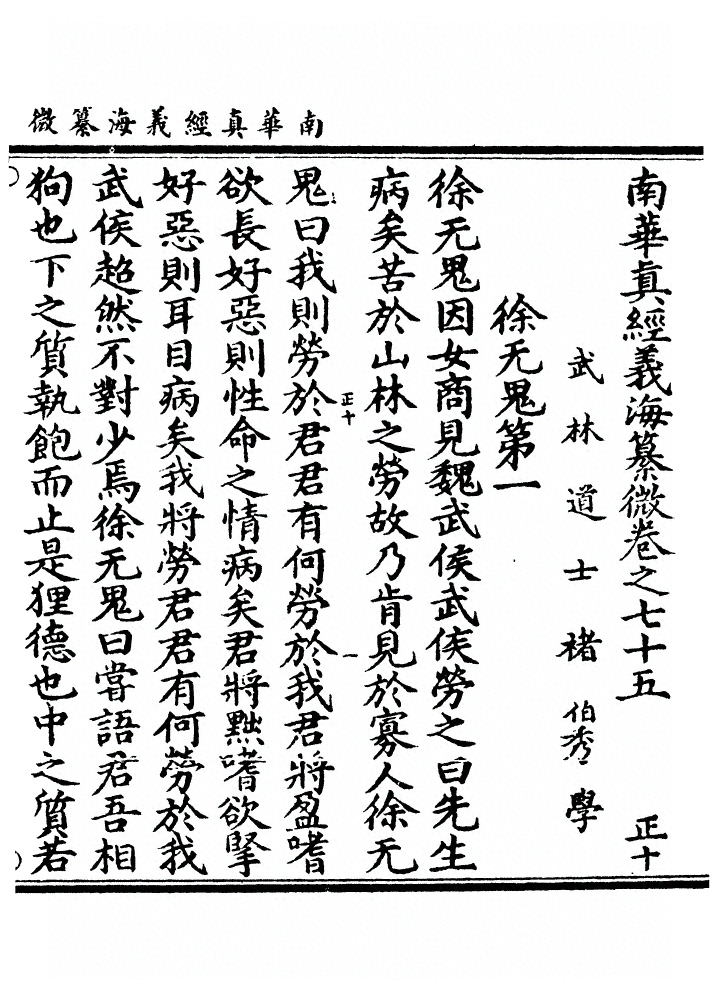 南華真經義海纂微
南華真經義海纂微卷之七十五 正十
武林道士褚伯秀學
徐无鬼第一
徐无鬼因女商見魏武侯武侯勞之曰先生
病矣苦於山林之勞故乃肯見於寡人徐无
正十 一
鬼曰我則勞於君君有何勞於我君將盈嗜
欲長好惡則性命之情病矣君將黜嗜欲掔
好惡則耳目病矣我將勞君君有何勞於我
武侯超然不對少焉徐无鬼曰嘗語君吾相
狗也下之質執飽而止是狸德也中之質若